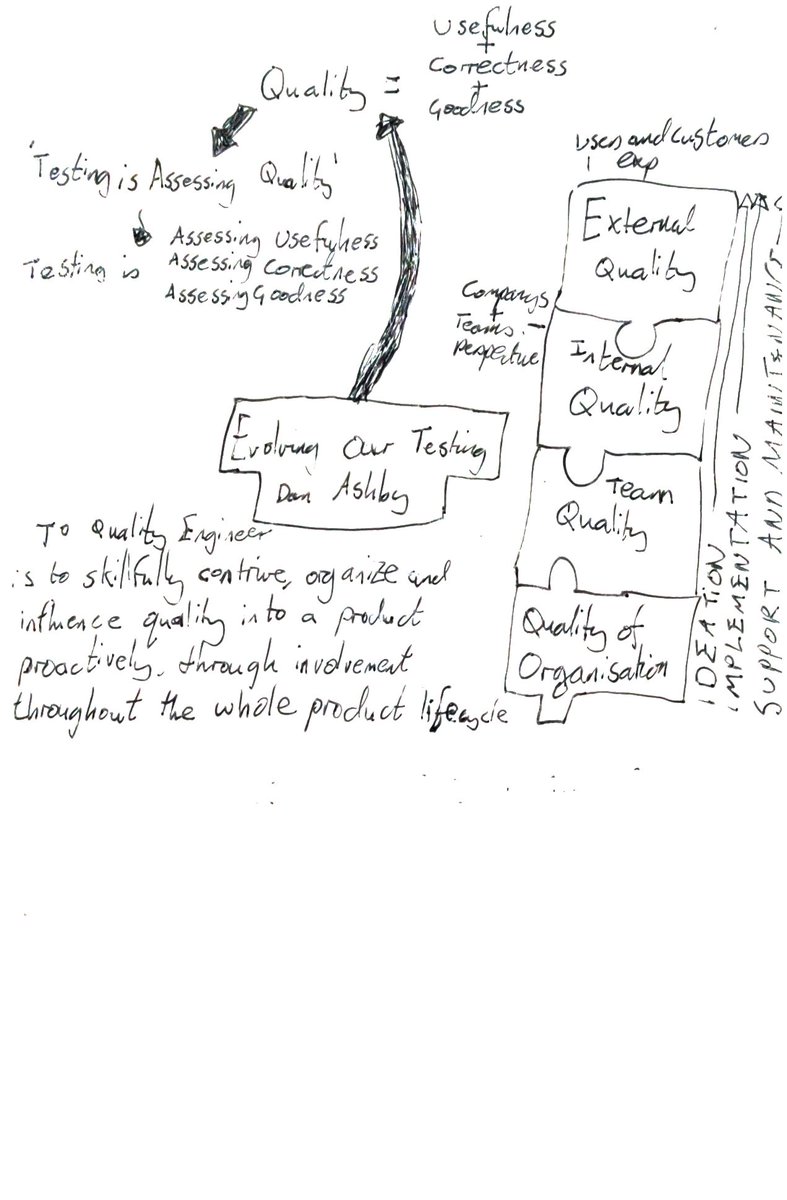 Usefulness
+
Correctness
+
Goodness
Quality =
'Testing is Assessing Quality'
Testing is
Assessing Usefulness
Assessing Correctness
Assessing Goodness
Evolving Our Testing
Dan Ashby
To Quality Engineer
is to skillfully contrive, organize and
influence quality into a product
proactively, through involvement
throughout the whole product lifecycle
Users and customers
exp
External
Quality
Companys
+
Teams
Internal
Quality
Team
Quality
Quality of
Organisation
IDEATION
IMPLEMENTATION
SUPPORT AND